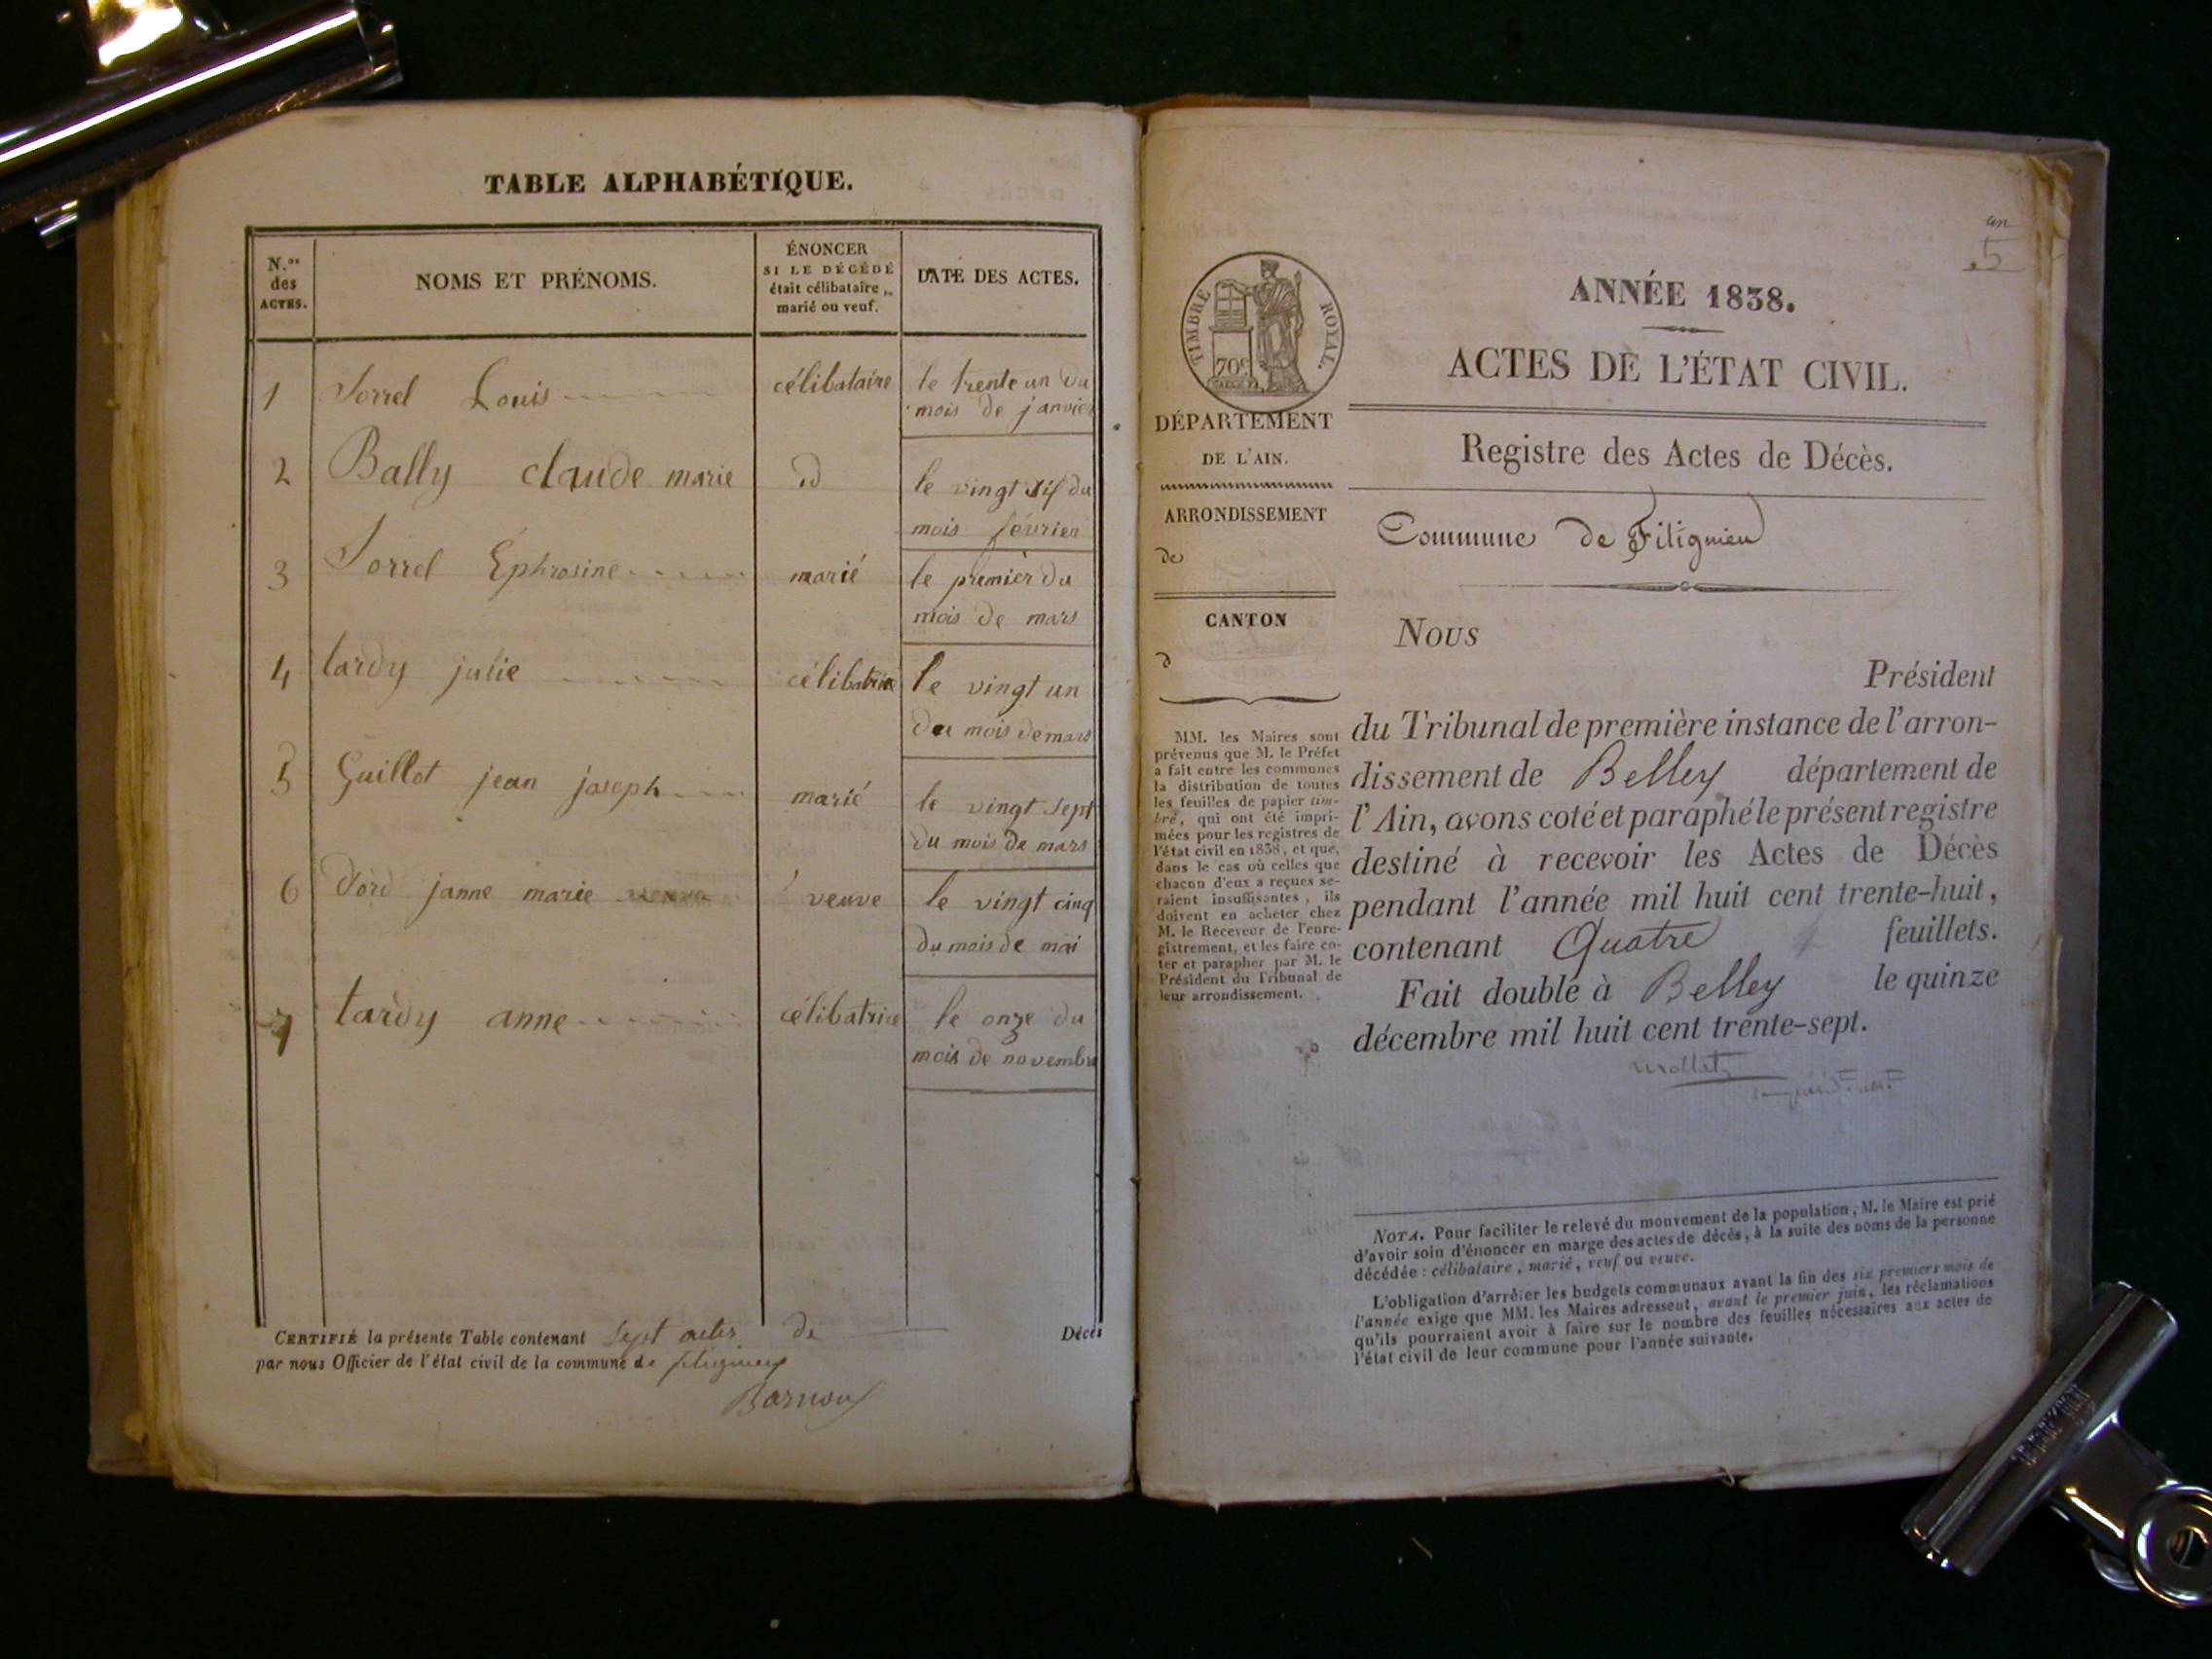 TABLE ALPHABÉTIQUE.
N.os des ACTES.
NOMS ET PRÉNOMS.
ÉNONCER
SI LE DÉCÉDÉ
était célibataire,
marié ou veuf.
DATE DES ACTES.
1 Sorrel Louis célibataire le trente un du
mois de janvier
2 Bally claude marie id le vingt six du
mois février
3 Sorrel Éphrosine marié le premier du
mois de mars
4 tardy julie célibatrice le vingt un
du mois de mars
5 Guillot jean joseph marié le vingt sept
du mois de mars
6 janne marie veuve le vingt cinq
du mois de mai
7 tardy anne célibatrice le onze du
mois de novembre
CERTIFIÉ la présente Table contenant Sept actes de Décès
par nous Officier de l'état civil de la commune de
un
5
TIMBRE ROYAL.
70c
ANNÉE 1838.
ACTES DE L'ÉTAT CIVIL.
Registre des Actes de Décès.
Commune de Filignieu
DÉPARTEMENT
DE L'AIN.
ARRONDISSEMENT
de
CANTON
d
MM. les Maires sont
prévenus que M. le Préfet
a fait entre les communes
la distribution de toutes
les feuilles de papier tim-
bré, qui ont été impri-
mées pour les registres de
l'état civil en 1838, et que,
dans le cas où celles que
chacun d'eux a reçues se-
raient insuffisantes, ils
doivent en acheter chez
M. le Receveur de l'enre-
gistrement, et les faire co-
ter et parapher par M. le
Président du Tribunal de
leur arrondissement.
Nous
Président
du Tribunal de première instance de l'arron-
dissement de Belley département de
l'Ain, avons coté et paraphé le présent registre
destiné à recevoir les Actes de Décès
pendant l'année mil huit cent trente-huit,
contenant Quatre feuillets.
Fait double à Belley le quinze
décembre mil huit cent trente-sept.
NOTA. Pour faciliter le relevé du mouvement de la population, M. le Maire est prié
d'avoir soin d'énoncer en marge des actes de décès, à la suite des noms de la personne
décédée : célibataire, marié, veuf ou veuve.
L'obligation d'arrêter les budgets communaux avant la fin des six premiers mois de
l'année exige que MM. les Maires adressent, avant le premier juin, les réclamations
qu'ils pourraient avoir à faire sur le nombre des feuilles nécessaires aux actes de
l'état civil de leur commune pour l'année suivante.